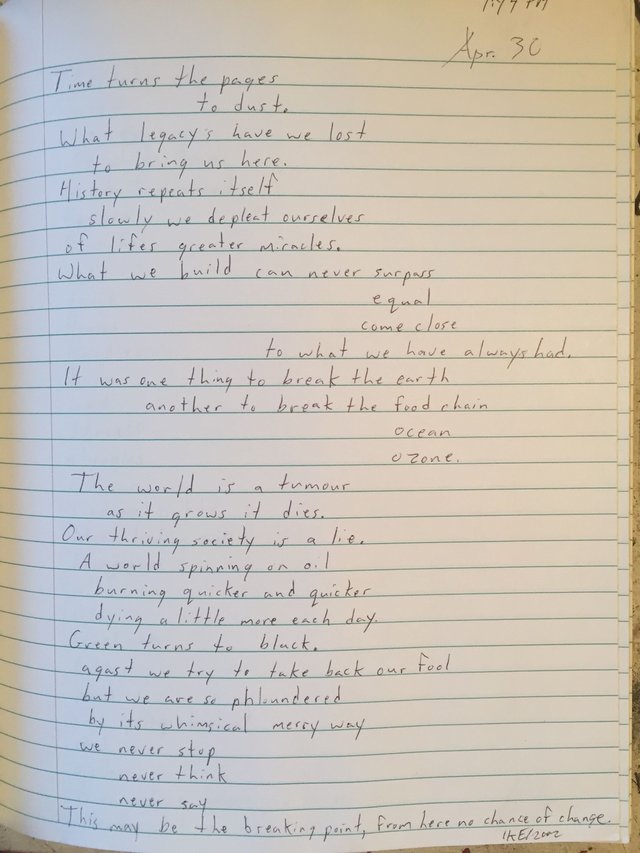 1:44 PM
Apr. 30
Time turns the pages
to dust.
What legacy's have we lost
to bring us here.
History repeats itself
slowly we depleat ourselves
of lifes greater miracles.
What we build can never surpass
equal
come close
to what we have always had.
It was one thing to break the earth
another to break the food chain
ocean
ozone.
The world is a tumour
as it grows it dies.
Our thriving society is a lie.
A world spinning on oil
burning quicker and quicker
dying a little more each day.
Green turns to black.
agast we try to take back our fool
but we are so phloundered
by its whimsical merry way
we never stop
never think
never say
This may be the breaking point, from here no chance of change.